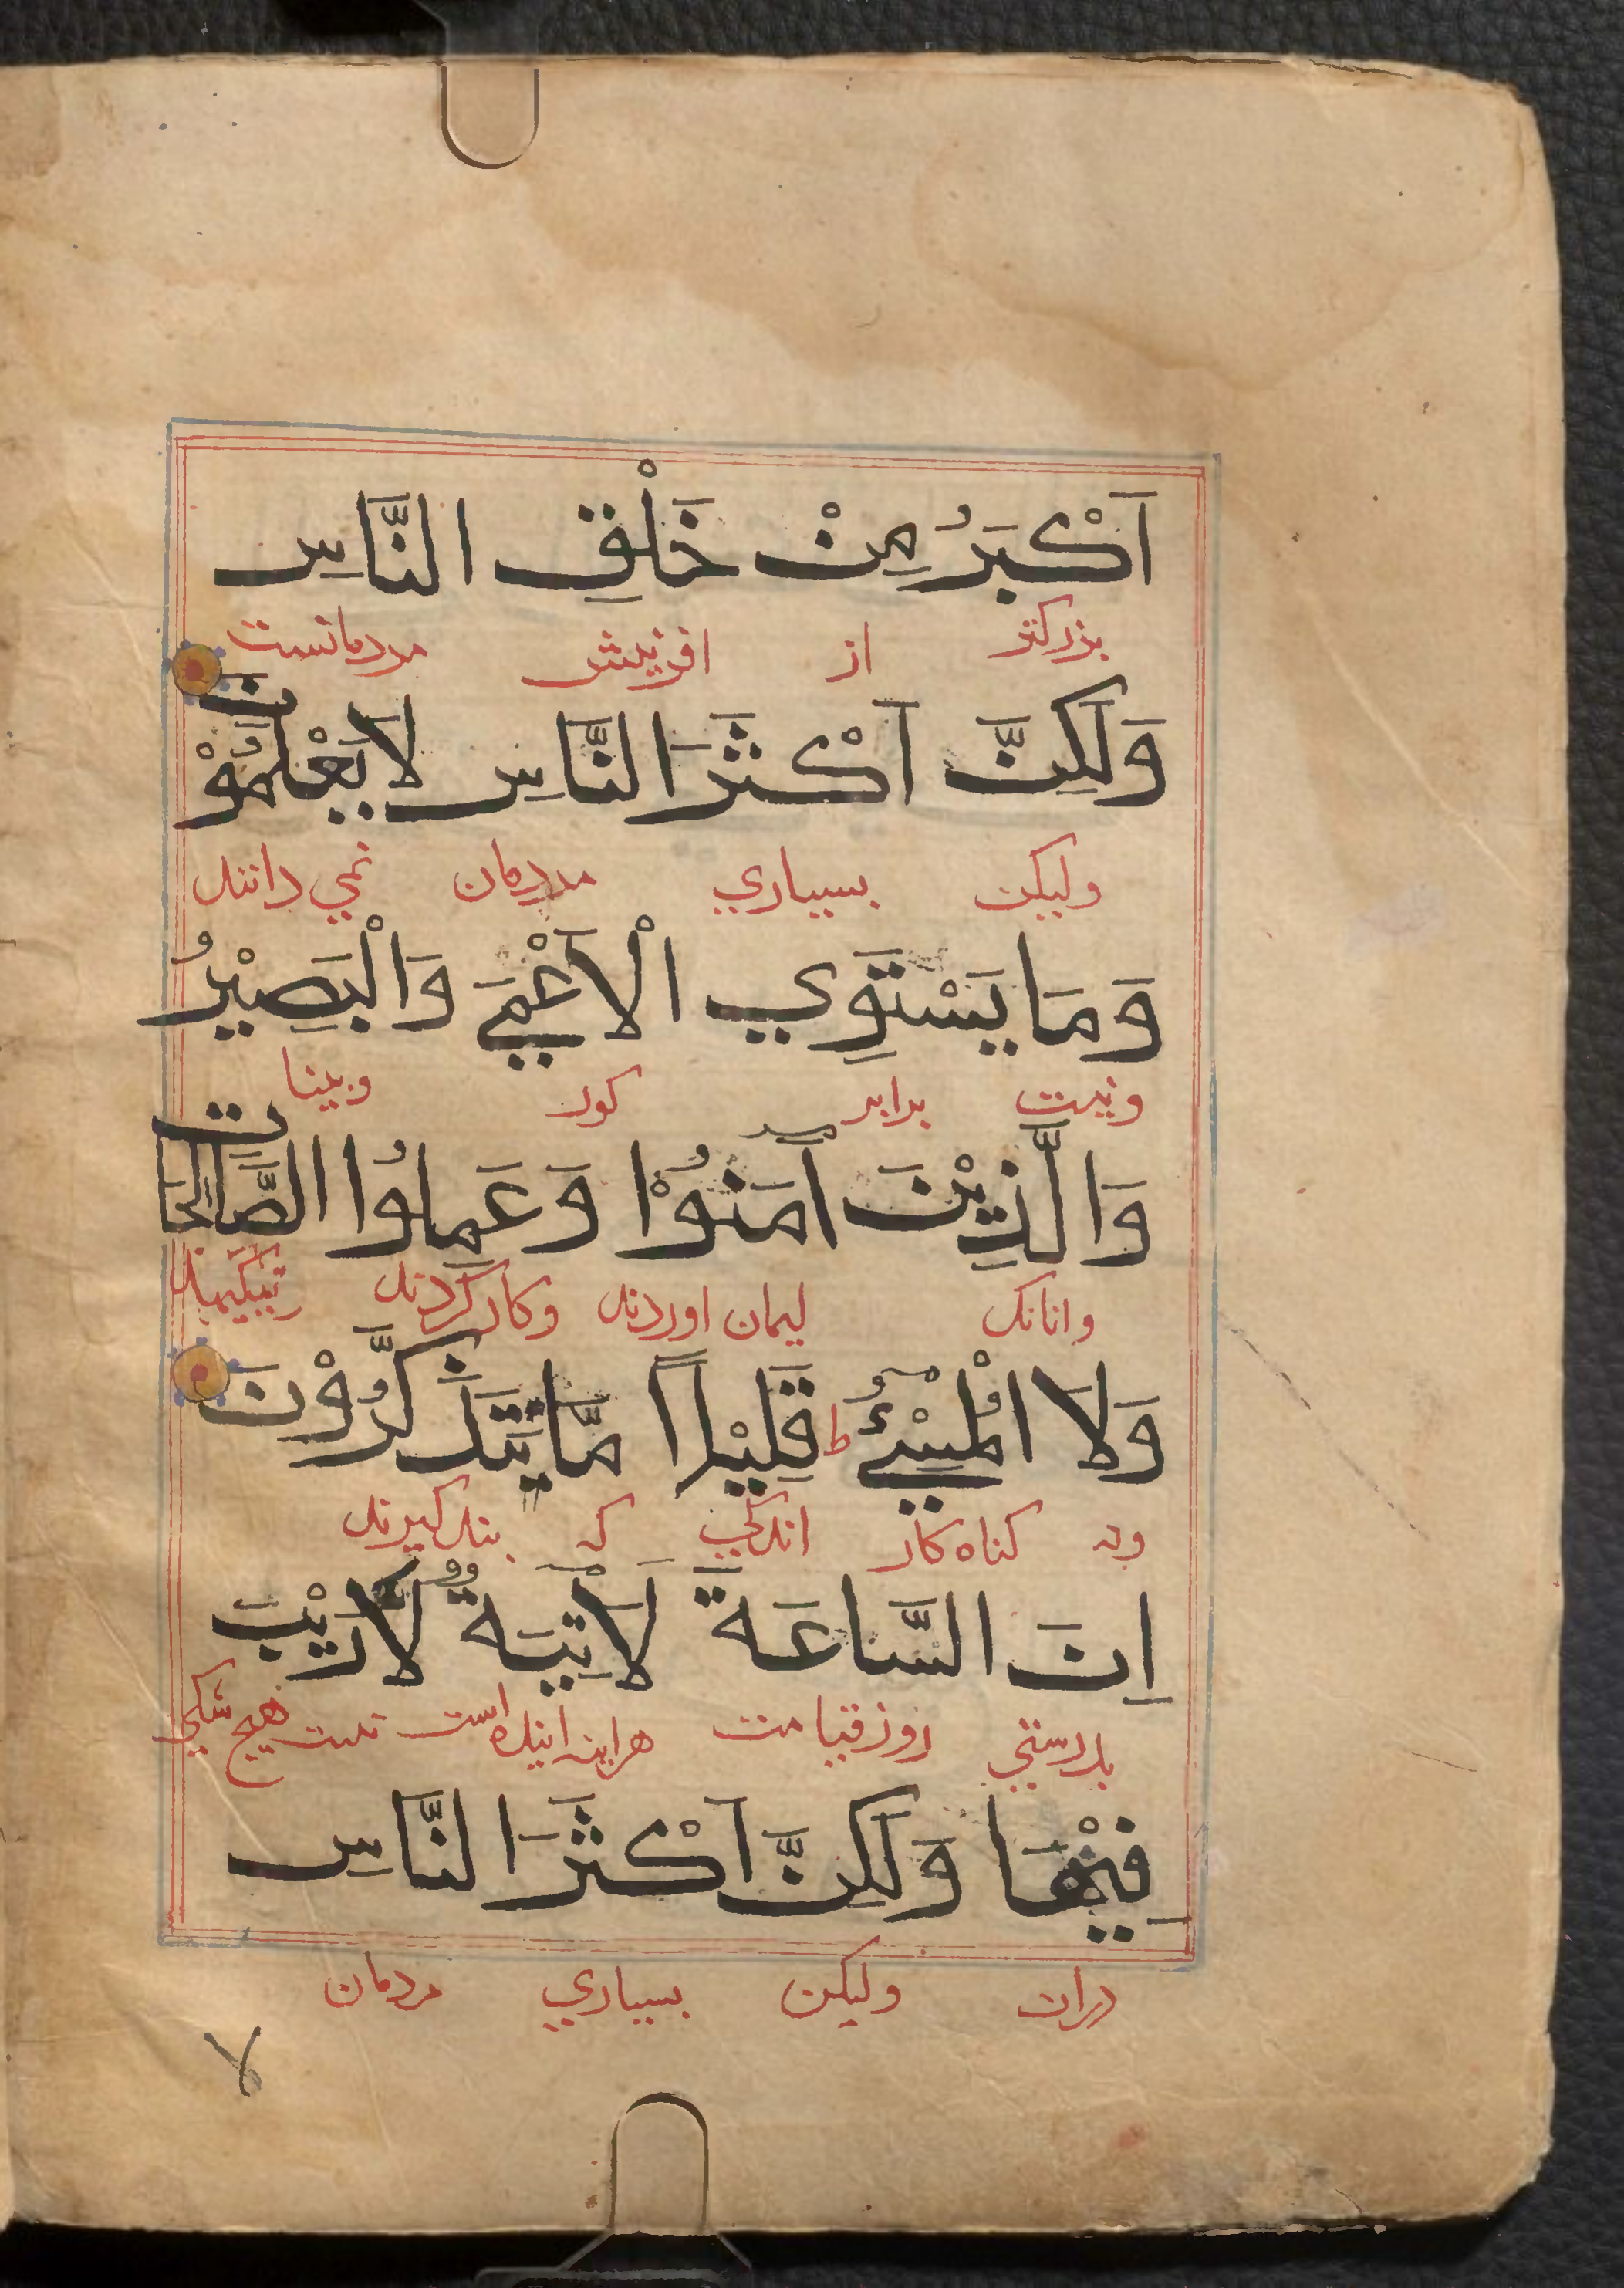 اَكْبَرُ مِنْ خَلْقِ النَّاسِ
بزرکتر از افرینش مردمانست
وَلَكِنَّ اَكْثَرَ النَّاسِ لَا يَعْلَمُوْنَ
ولیکن بسیاري مردمان نمي دانند
وَمَا يَسْتَوِي الْاَعْمَي وَالْبَصِيْرُ
ونیست برابر کور وبینا
وَالَّذِيْنَ اٰمَنُوْا وَعَمِلُوا الصَّالِحَاتِ
وانانک ایمان اوردند وکار کردند
وَلَا الْمُسِيْئُ ط قَلِيْلًا مَّا يَتَذَكَّرُوْنَ
ونه کناه کار اندکي که پند کیرند
اِنَ السَّاعَةَ لَاٰتِيَةٌ لَا رَيْبَ
بدرستي روز قیامت هراینه ایند است نیست هیچ شکي
فِيْهَا وَلَكِنَّ اَكْثَرَ النَّاسِ
دران ولیکن بسیاري مردمان
لا